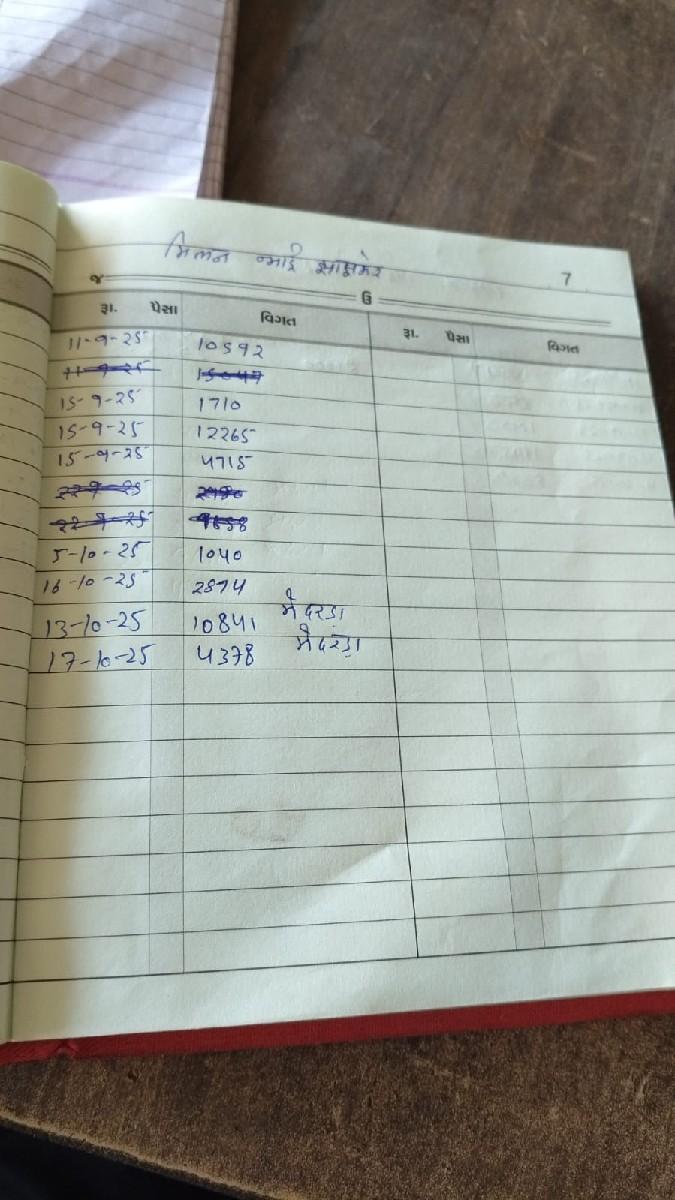 મિલન ભાઈ 7
જ ઉ
રૂા. પૈસા વિગત રૂા. પૈસા વિગત
11-9-25 10592
11-9-25
15-9-25 1710
15-9-25 12265
15-9-25 4715
22-9-25
22-9-25 9658
5-10-25 1040
16-10-25 2874
13-10-25 10841 મેંદરડા
17-10-25 4378 મેંદરડા